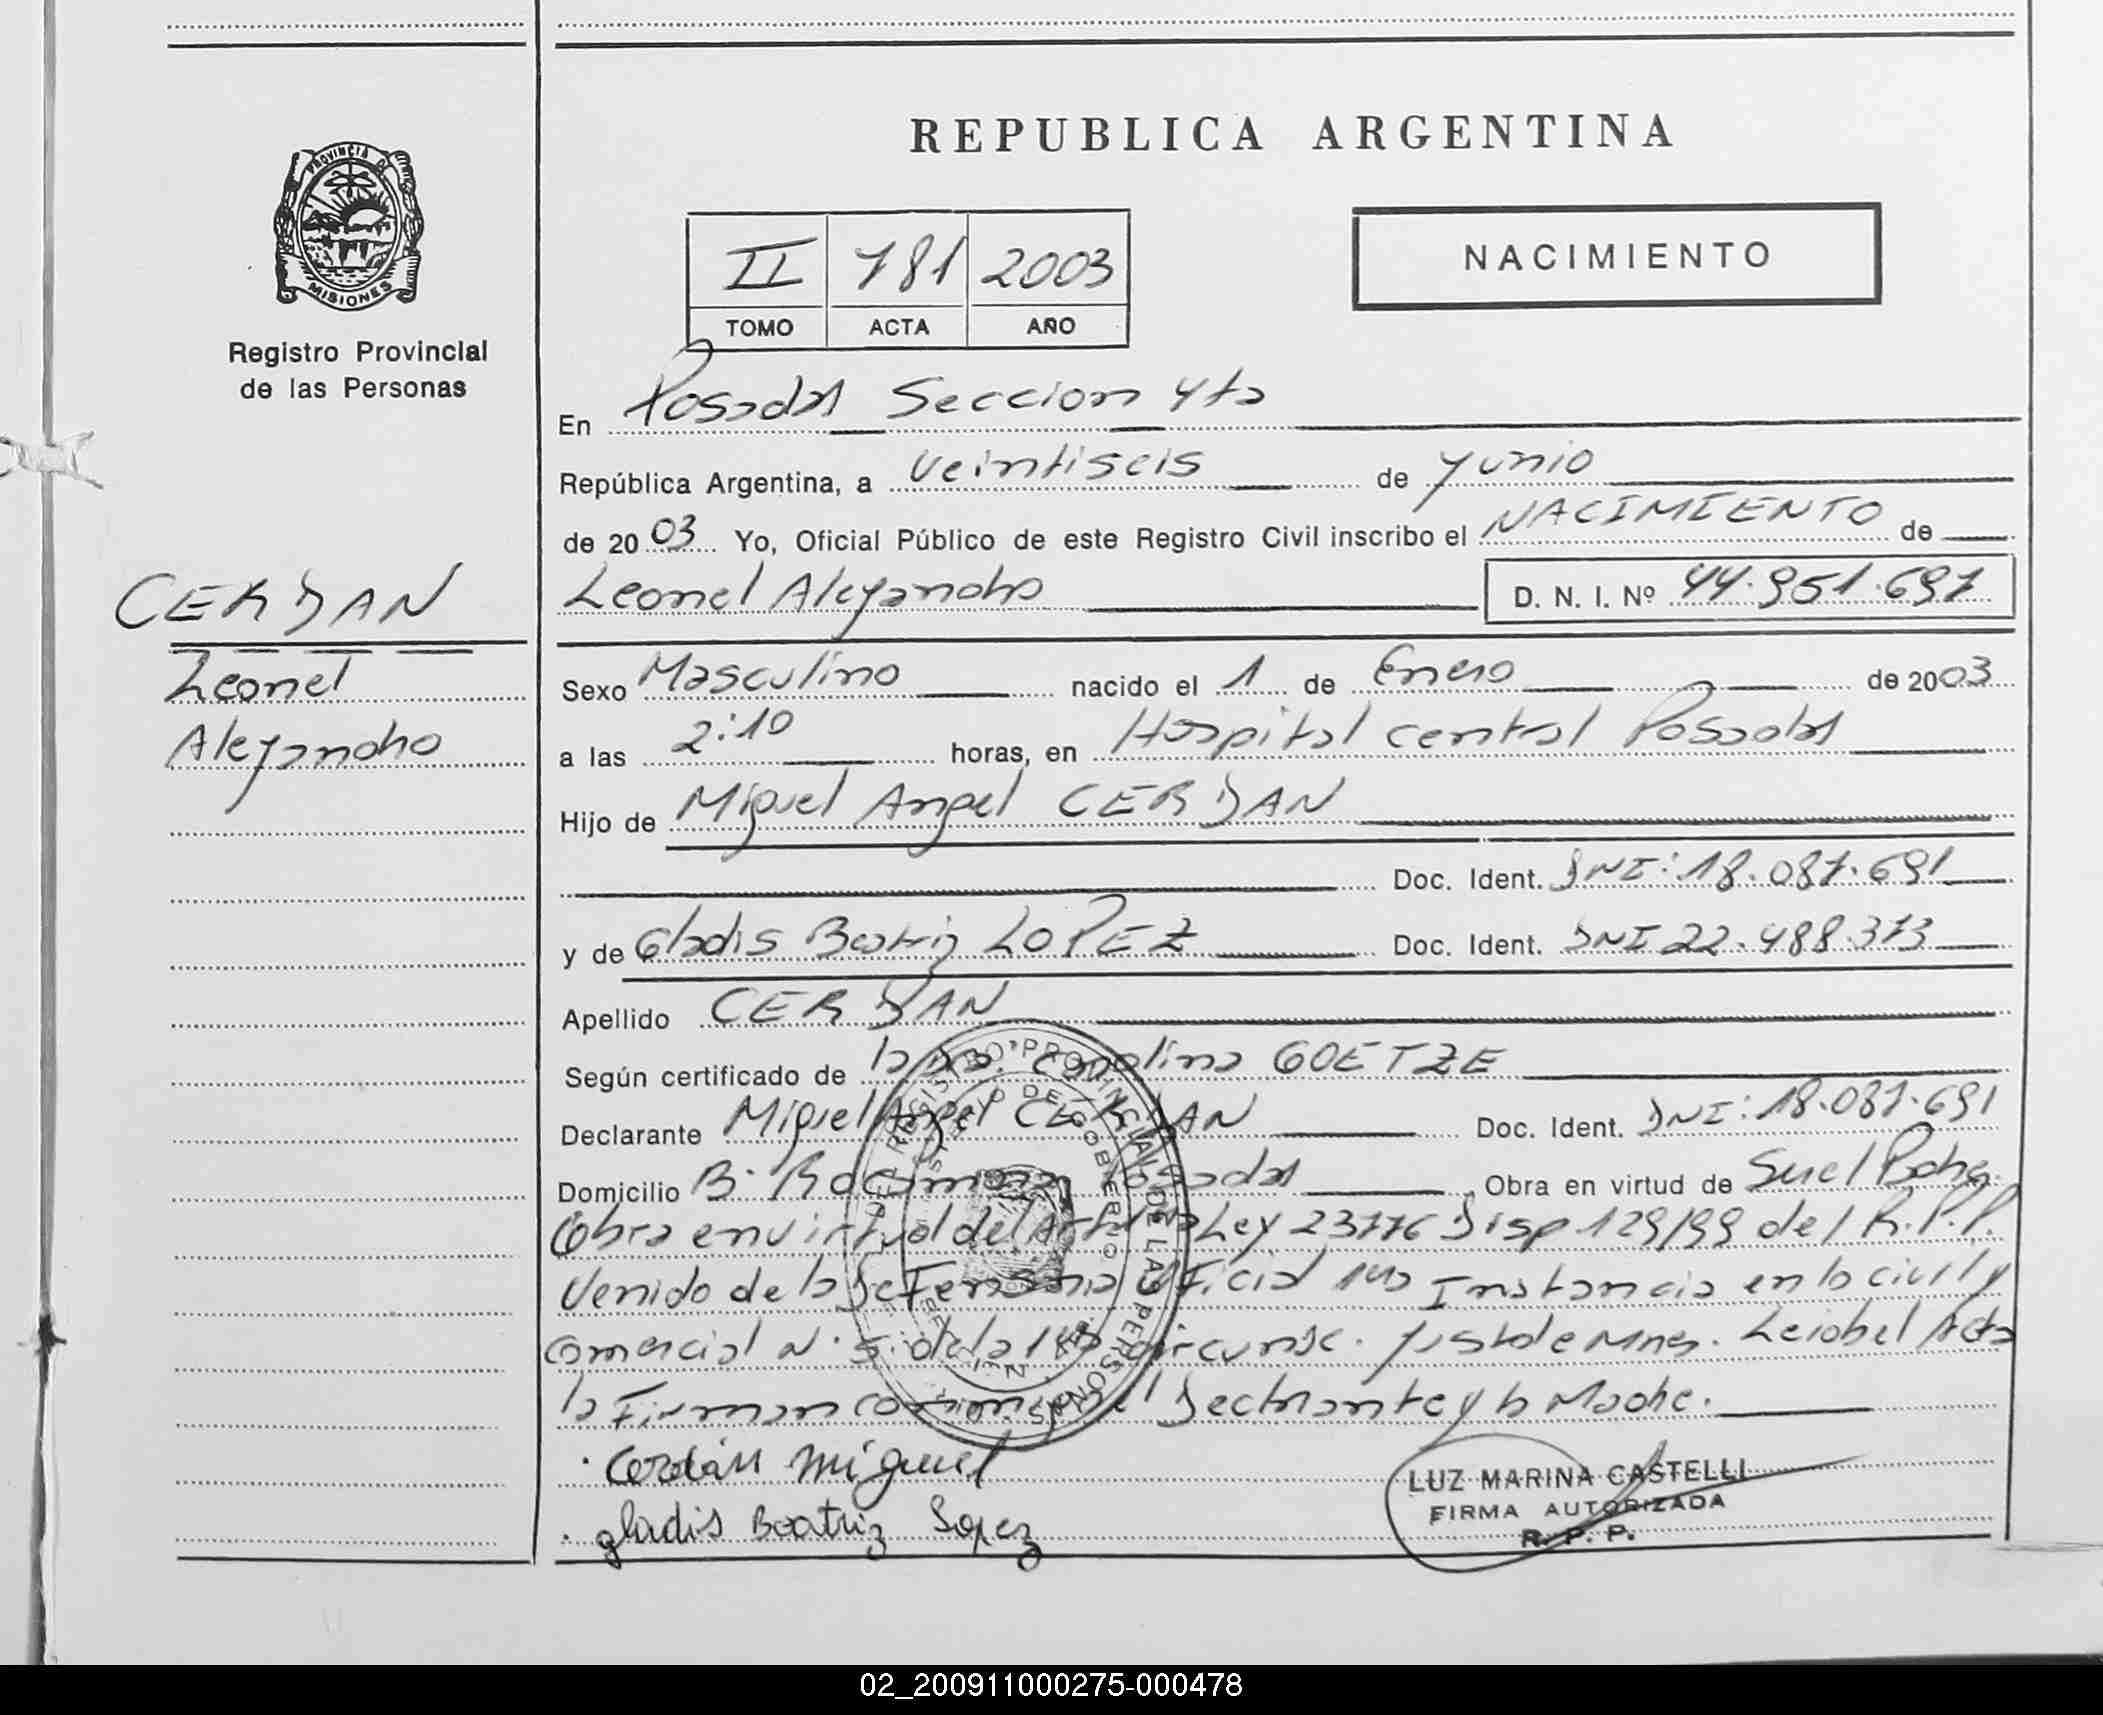 REPUBLICA ARGENTINA
PROVINCIA DE MISIONES
Registro Provincial
de las Personas
II 781 2003
TOMO ACTA AÑO
NACIMIENTO
En Posadas Seccion 4ta
República Argentina, a veintiseis de Junio
de 2003 Yo, Oficial Público de este Registro Civil inscribo el NACIMIENTO de
CERDAN
Leonel Alejandro
Leonel Alejandro D. N. I. Nº 44.951.697
Sexo Masculino nacido el 1 de Enero de 2003
a las 2:10 horas, en Hospital central Posadas
Hijo de Miguel Angel CERDAN
Doc. Ident. DNI: 18.087.691
y de Gladis Beatriz LOPEZ Doc. Ident. DNI 22.488.373
Apellido CERDAN
Según certificado de la Dra. Carolina GOETZE
Declarante Miguel Angel CERDAN Doc. Ident. DNI: 18.087.691
Domicilio B. Posadas Obra en virtud de
Obra en virtud del Ley 23776 Disp 129/99 del R.P.P.
Venido de la Defensoria Oficial 1ra Instancia en lo civil y
comercial N. 5. de la 1ra circunsc. Just de Mnes. Leida el Acta
la Firman conmigo el Declarante y la Madre.
Cerdán Miguel
gladis Beatriz Lopez
LUZ MARINA CASTELLI
FIRMA AUTORIZADA
R. P. P.
REGISTRO PROVINCIAL DE LAS PERSONAS
02_200911000275-000478